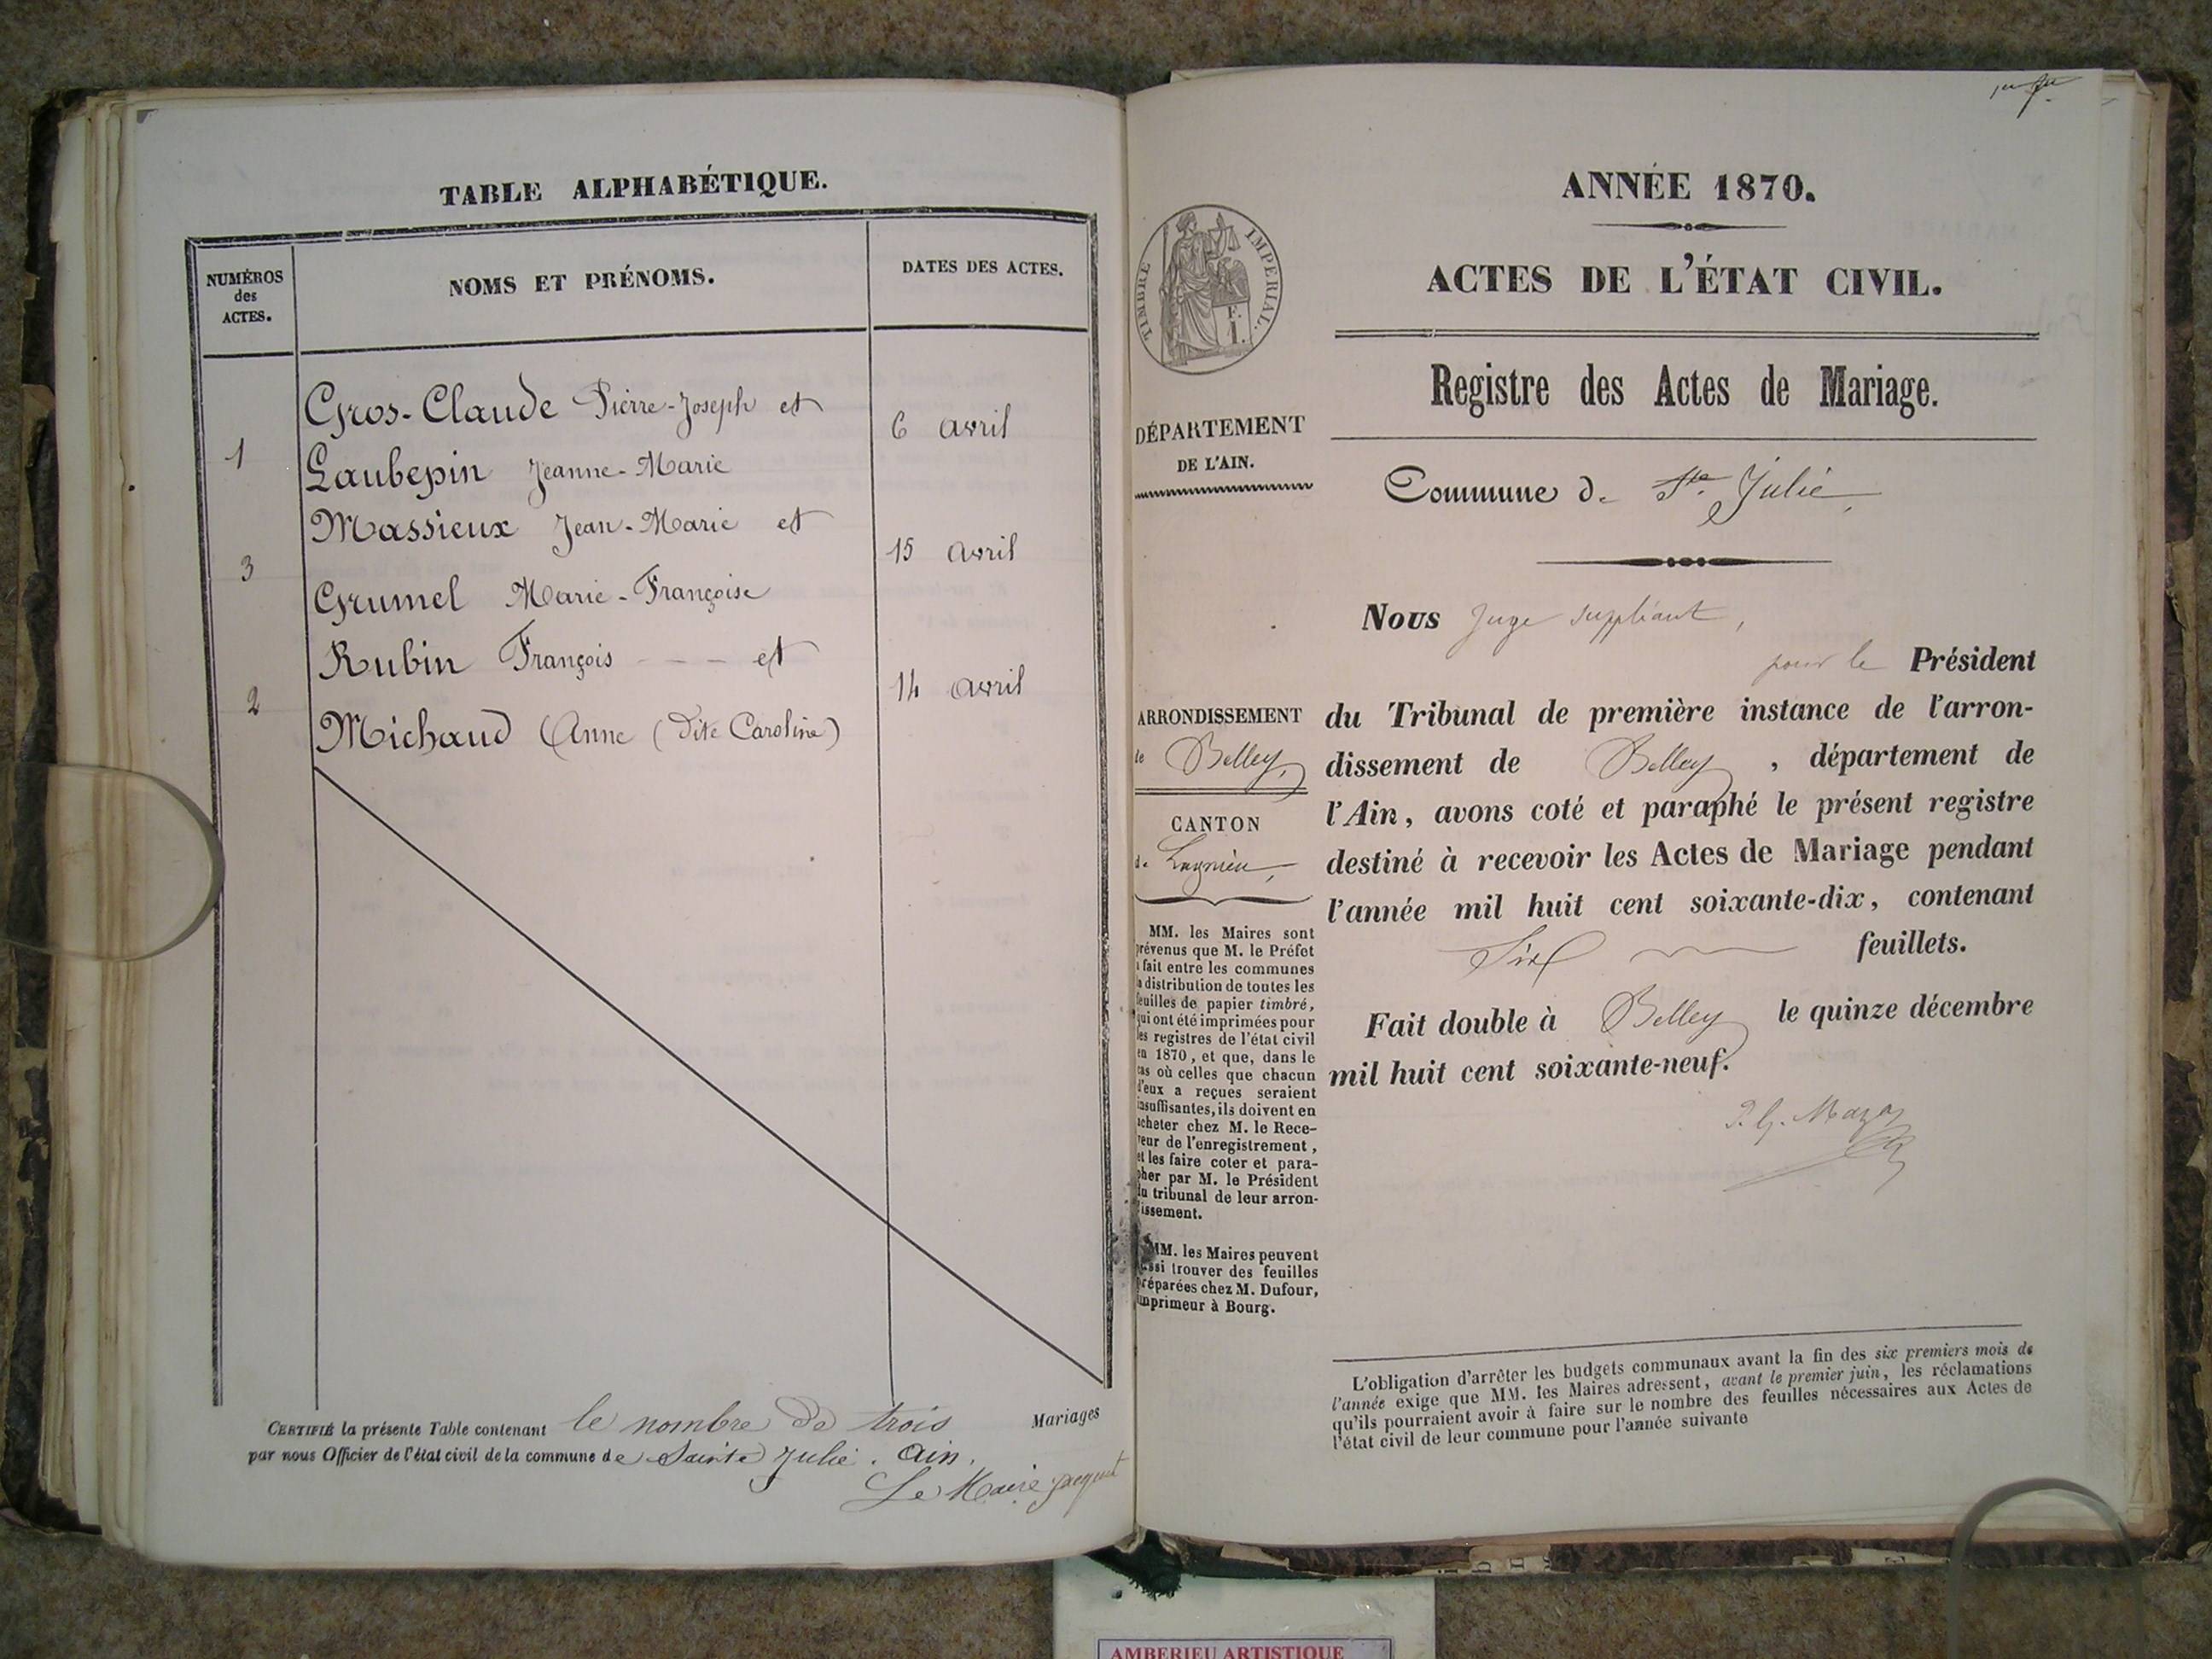 TABLE ALPHABÉTIQUE.
NUMÉROS
des
ACTES.
NOMS ET PRÉNOMS.
DATES DES ACTES.
Gros-Claude Pierre-Joseph et
1
6 avril
Laubepin Jeanne-Marie
Massieux Jean-Marie et
3
15 avril
Grumel Marie-Françoise
Rubin François - - - et
2
14 avril
Michaud Anne (dite Caroline)
CERTIFIÉ la présente Table contenant le nombre de trois Mariages
par nous Officier de l'état civil de la commune de Sainte Julie. Ain.
Le Maire
ANNÉE 1870.
ACTES DE L'ÉTAT CIVIL.
TIMBRE IMPERIAL.
F.
1.
Registre des Actes de Mariage.
DÉPARTEMENT
DE L'AIN.
Commune de Ste. Julie,
Nous Juge suppléant,
pour le Président
ARRONDISSEMENT
de Belley,
CANTON
de Lagnieu,
du Tribunal de première instance de l'arron-
dissement de Belley, département de
l'Ain, avons coté et paraphé le présent registre
destiné à recevoir les Actes de Mariage pendant
l'année mil huit cent soixante-dix, contenant
Six feuillets.
Fait double à Belley le quinze décembre
mil huit cent soixante-neuf.
MM. les Maires sont
prévenus que M. le Préfet
a fait entre les communes
la distribution de toutes les
feuilles de papier timbré,
qui ont été imprimées pour
les registres de l'état civil
en 1870, et que, dans le
cas où celles que chacun
d'eux a reçues seraient
insuffisantes, ils doivent en
acheter chez M. le Rece-
veur de l'enregistrement,
et les faire coter et para-
pher par M. le Président
du tribunal de leur arron-
dissement.
MM. les Maires peuvent
aussi trouver des feuilles
préparées chez M. Dufour,
imprimeur à Bourg.
L'obligation d'arrêter les budgets communaux avant la fin des six premiers mois de
l'année exige que MM. les Maires adressent, avant le premier juin, les réclamations
qu'ils pourraient avoir à faire sur le nombre des feuilles nécessaires aux Actes de
l'état civil de leur commune pour l'année suivante
AMBERIEU ARTISTIQUE